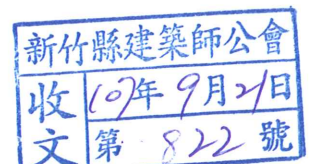 新竹縣建築師公會
收文
107年9月21日
第 822 號